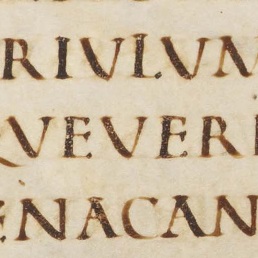 RIVLVM
QVEVERI
ENACAN